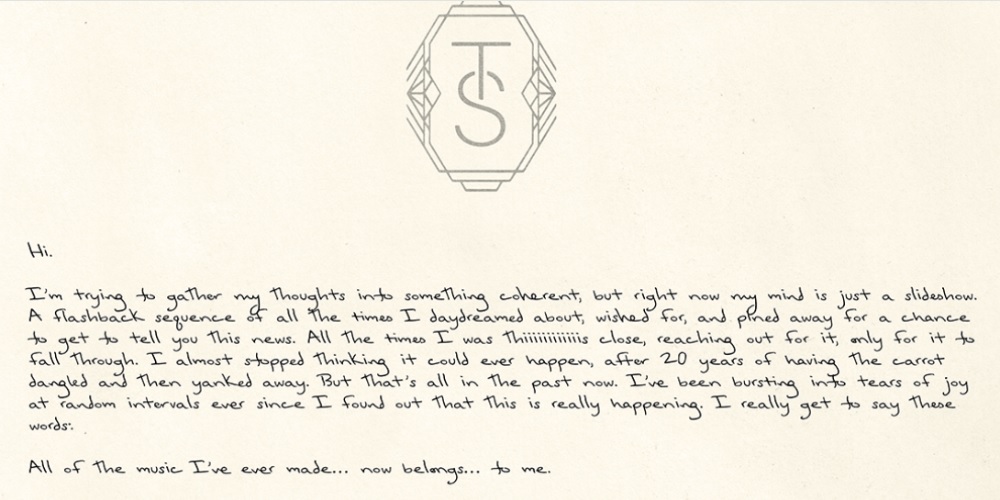 TS
Hi.
I'm trying to gather my thoughts into something coherent, but right now my mind is just a slideshow.
A flashback sequence of all the times I daydreamed about, wished for, and pined away for a chance
to get to tell you this news. All the times I was thiiiiiiiiiiiis close, reaching out for it, only for it to
fall through. I almost stopped thinking it could ever happen, after 20 years of having the carrot
dangled and then yanked away. But that's all in the past now. I've been bursting into tears of joy
at random intervals ever since I found out that this is really happening. I really get to say these
words:
All of the music I've ever made... now belongs... to me.